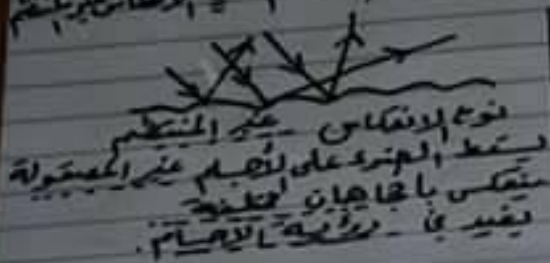 نوع الانعكاس غير المنتظم
يسقط الضوء على لأجسام غير المصقولة
ينعكس باتجاهات مختلفة
يفيد في رؤية الأجسام.